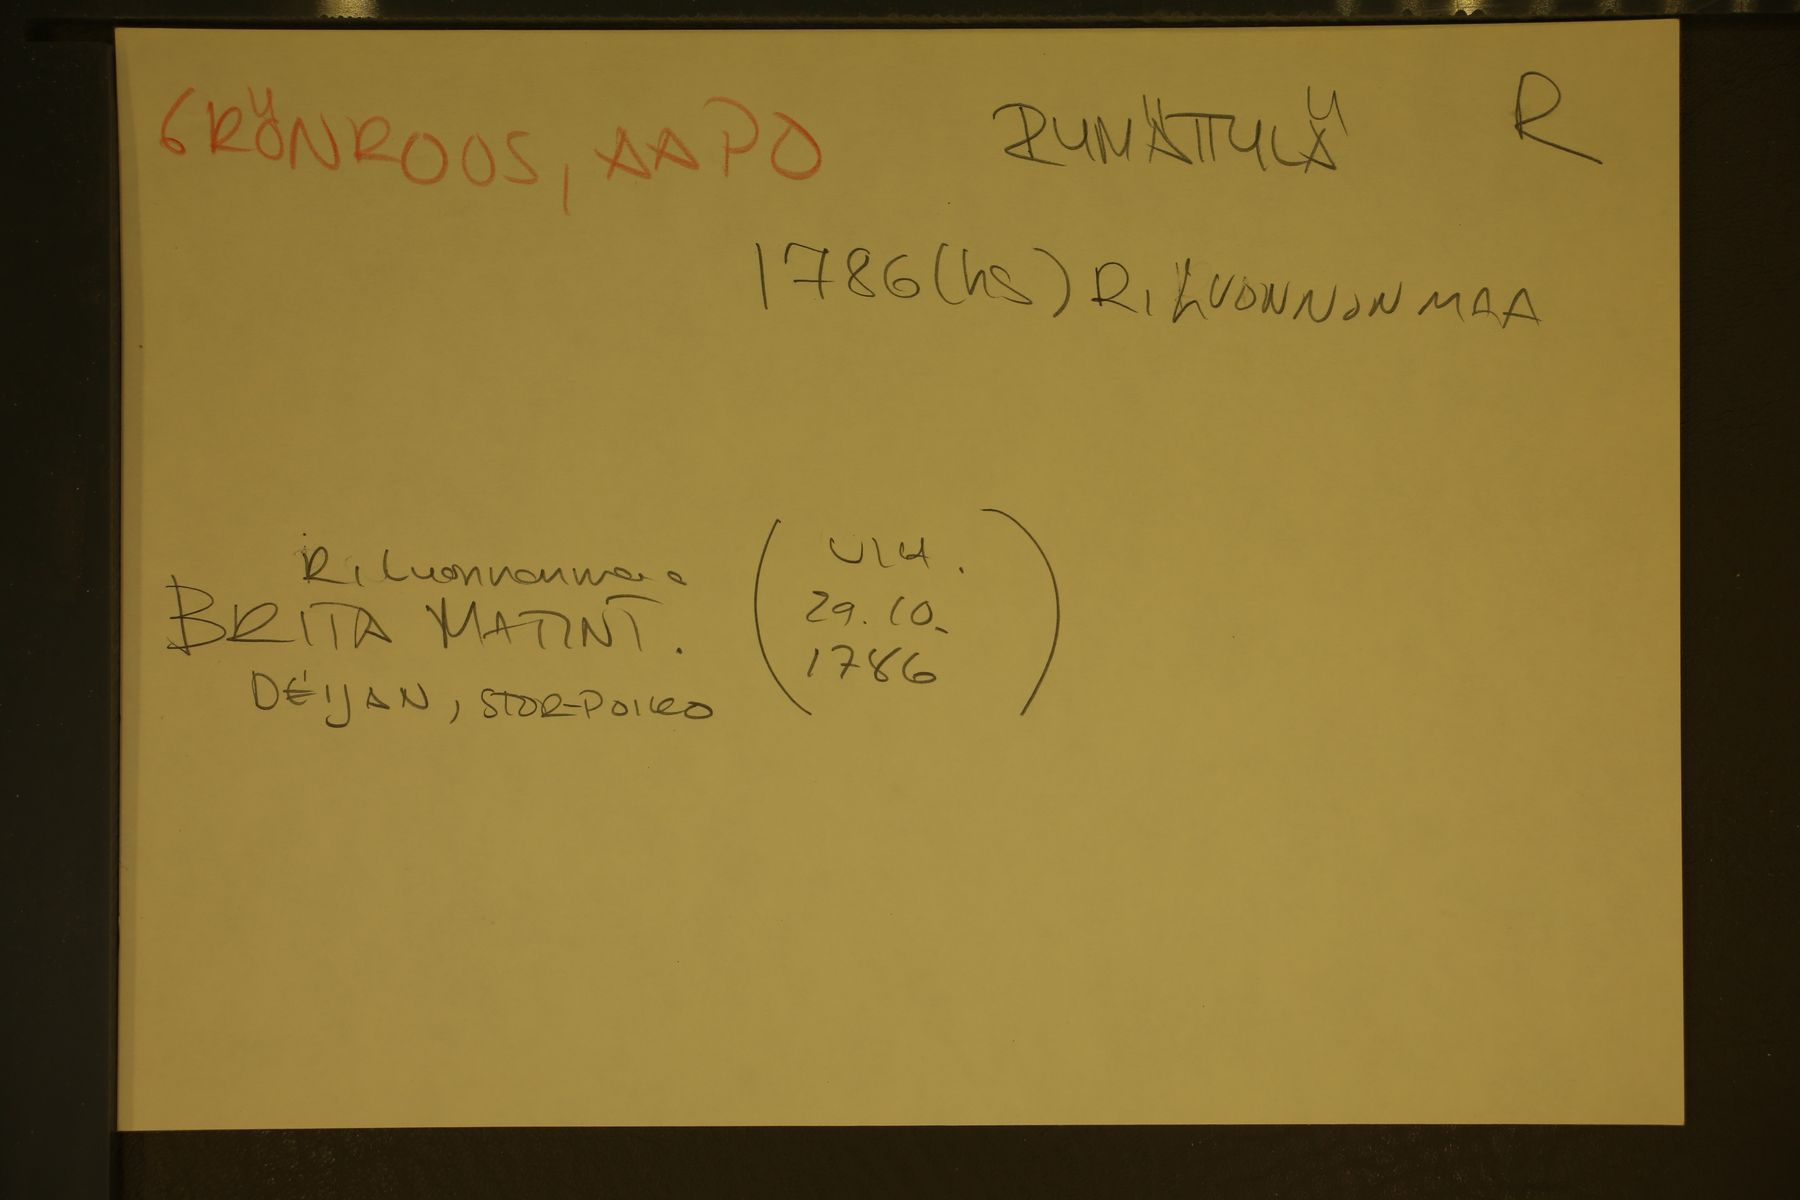 GRÖNROOS, AAPO RYMÄTTYLÄ R
1786 (hs) R, LUONNONMAA
R, Luonnonmaa
BRITA MATINT.
DEIJAN, STOR-POIKO
(VIH.
29.10.
1786)